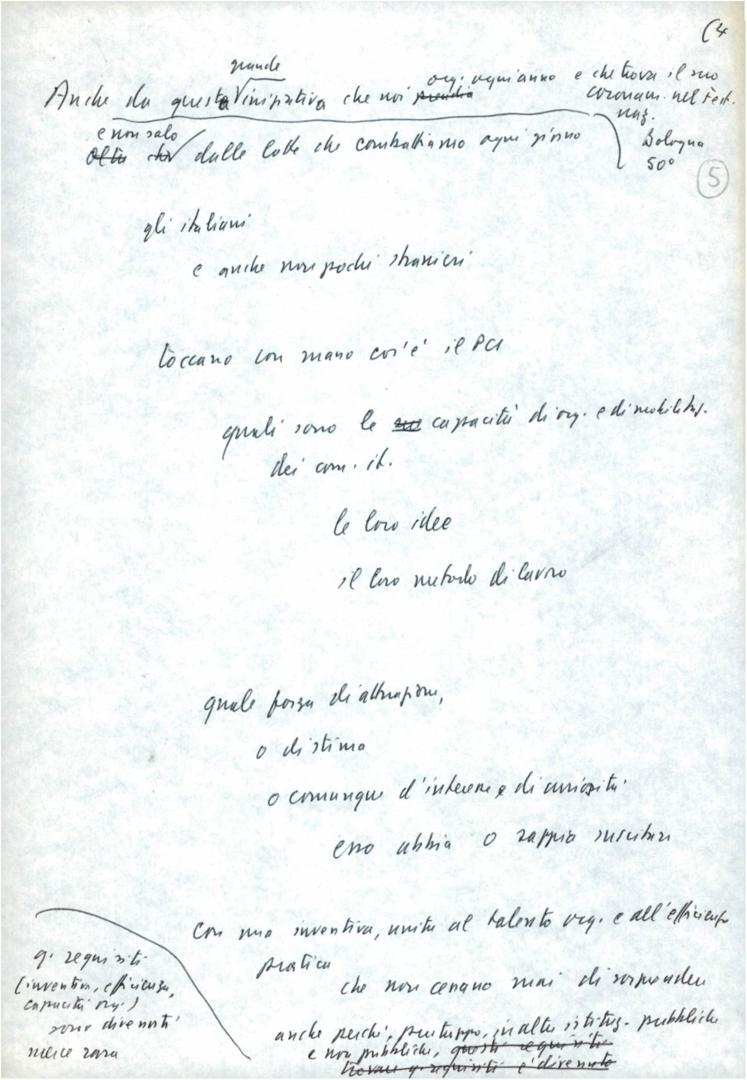 (4
grande
Anche da questa iniziativa che noi prendia org. ogni anno e che trova il suo
coronam. nel Fest.
naz.
Bologna
50°
e non solo
Oltre che dalle lotte che combattiamo ogni giorno
5
gli italiani
e anche non pochi stranieri
toccano con mano cos'è il PCI
quali sono le sue capacità di org. e di mobilitaz.
dei com. it.
le loro idee
il loro metodo di lavoro
quale forza di attrazione,
o di stima
o comunque d'interesse e di curiosità
esso abbia o sappia suscitare
con una inventiva, unita al talento org. e all'efficienza
pratica
che non cessano mai di sorprendere
anche perché, purtroppo, in altre istituz. pubbliche
e non pubbliche, questi requisiti
trovare q. requisiti è divenuto
q. requisiti
(inventiva, efficienza,
capacità org.)
sono divenuti
merce rara